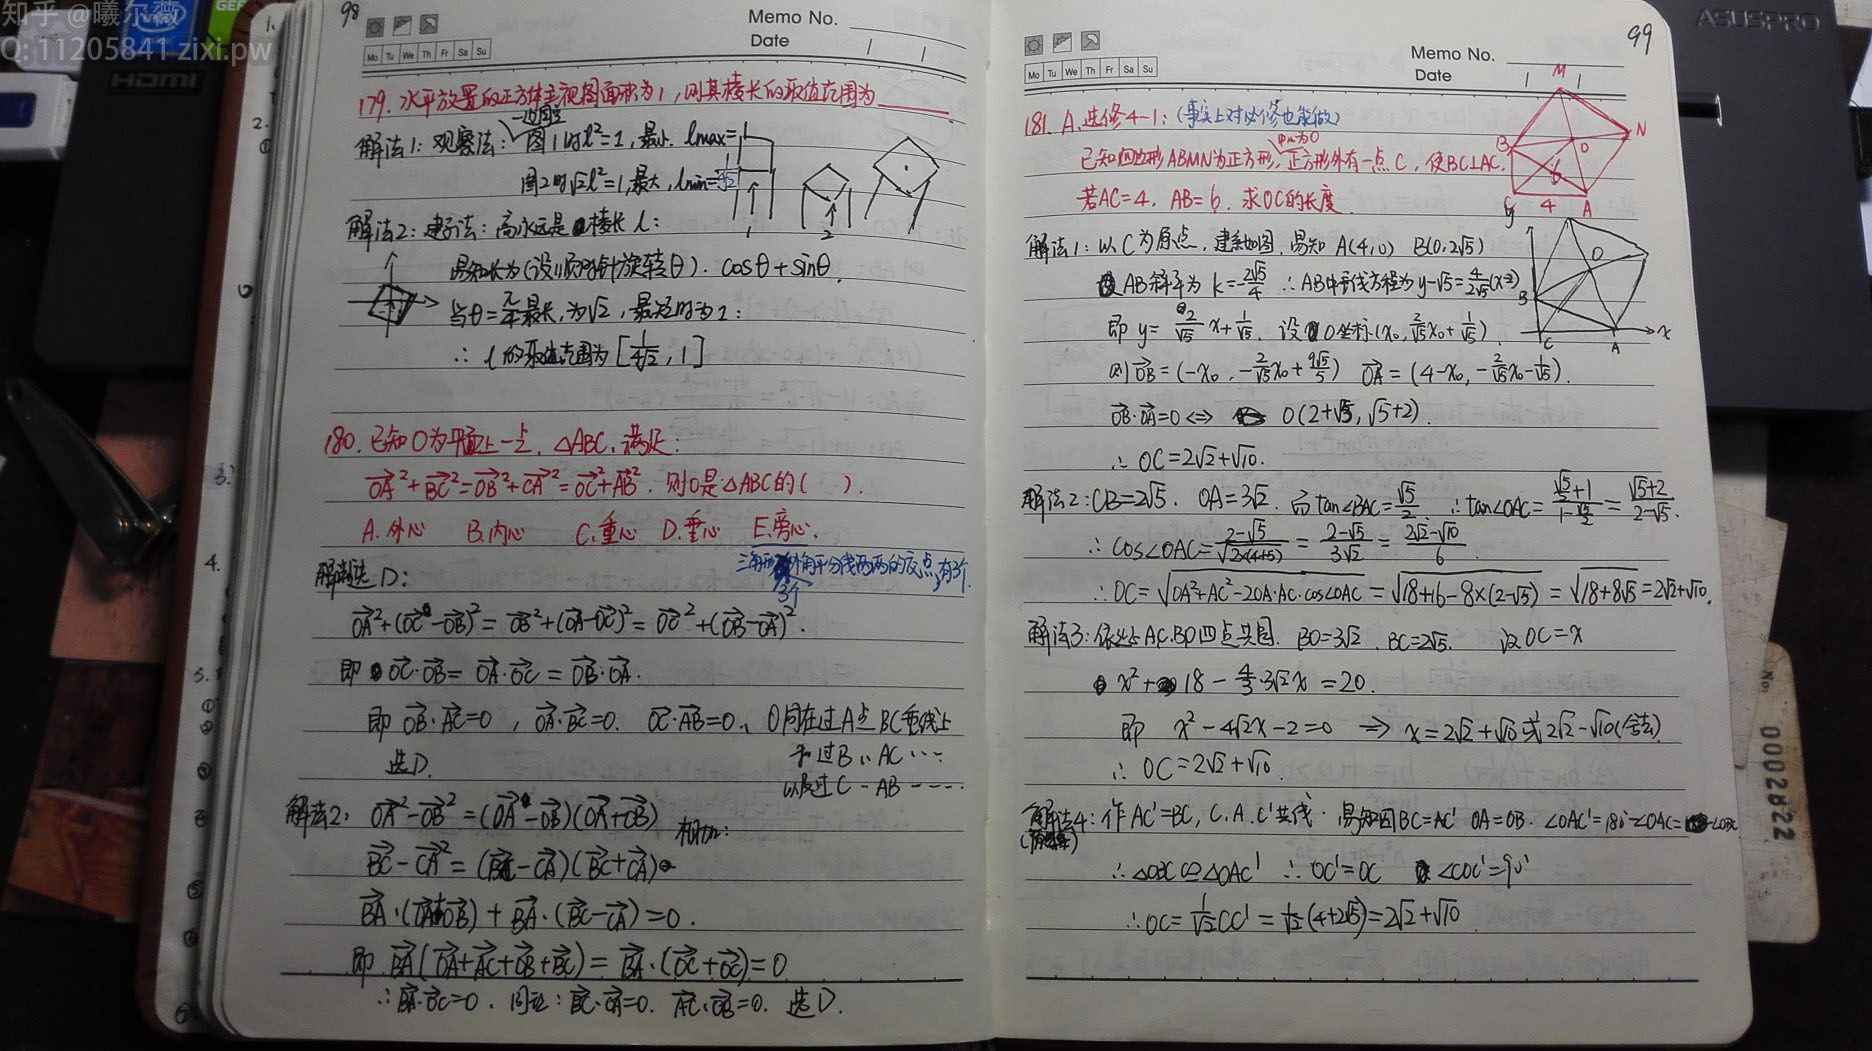 知乎 @曦尔薇
Q: 11205841 zixi.pw
HDMI
98
Memo No.
Date
Mo Tu We Th Fr Sa Su
179. 水平放置的正方体主视图面积为1,则其棱长的取值范围为
解法1: 观察法: 图1时l²=1,最小. lmax=1
图2时√2l²=1,最大,lmin=
1
2
解法2: 建系法: 高永远是棱长l:
易知长为(设顺时针旋转θ). cosθ+sinθ.
当θ=π/4最长,为√2,最短时为1:
∴ l的取值范围为[1/∜2, 1]
180. 已知O为平面上一点. △ABC. 满足:
OA²+BC²=OB²+CA²=OC²+AB². 则O是△ABC的( ).
A.外心 B.内心 C.重心 D.垂心 E.旁心.
三角形外角平分线两两的交点,有3个.
解法选D:
OA²+(OC-OB)²=OB²+(OA-OC)²=OC²+(OB-OA)².
即 OC·OB=OA·OC=OB·OA.
即 OB·AC=0, OA·BC=0. OC·AB=0. O同在过A点BC垂线上
和过B.. AC ...
以及过C - AB ----
选D.
解法2: OA²-OB²=(OA-OB)(OA+OB) 相加:
BC²-CA²=(BC-CA)(BC+CA)
BA·(OA+OB)+BA·(BC-CA)=0.
即 BA(OA+AC+OB+BC)=BA·(OC+OC)=0
∴BA·OC=0. 同理: BC·OA=0. AC·OB=0. 选D.
ASUSPRO
99
Memo No.
Date
Mo Tu We Th Fr Sa Su
181. A.选修4-1: (事实上对必修也能做)
中心为O
已知四边形ABMN为正方形,正方形外有一点C,使BC⊥AC.
若AC=4. AB=6. 求OC的长度.
M
N
B
O
6
C
4
A
解法1: 以C为原点,建系如图. 易知 A(4,0) B(0,2√5)
AB斜率为 k=-2√5/4 ∴AB中垂线方程为y-√5=4/2√5(x-2)
即 y=2/√5 x+1/√5. 设O坐标(x₀, 2/√5x₀+1/√5).
则OB=(-x₀, -2/√5x₀+9√5/5) OA=(4-x₀, -2/√5x₀-1/√5).
OB·OA=0⇔ O(2+√5, √5+2)
∴ OC=2√2+√10.
y
O
B
C
A
x
解法2: CB=2√5. OA=3√2. 而tan∠BAC=√5/2 ∴tan∠OAC=(√5/2+1)/(1-√5/2)=(√5+2)/(2-√5).
∴cos∠OAC=(2-√5)/√(2×(4+5))=(2-√5)/3√2=(2√2-√10)/6
∴OC=√(OA²+AC²-2OA·AC·cos∠OAC)=√(18+16-8×(2-√5))=√(18+8√5)=2√2+√10.
解法3: 依然上AC.BO四点共圆. BO=3√2. BC=2√5. 设OC=x
x²+18-4/3·3√2x=20.
即 x²-4√2x-2=0 ⇒ x=2√2+√10或2√2-√10(舍去).
∴ OC=2√2+√10.
解法4: 作AC'=BC, C.A.C'共线. 易知因BC=AC' OA=OB. ∠OAC'=180°-∠OAC=∠OBC
∴△OBC≌△OAC' ∴OC'=OC ∠COC'=90°
∴OC=1/√2CC'=1/√2(4+2√5)=2√2+√10
No: 0002822